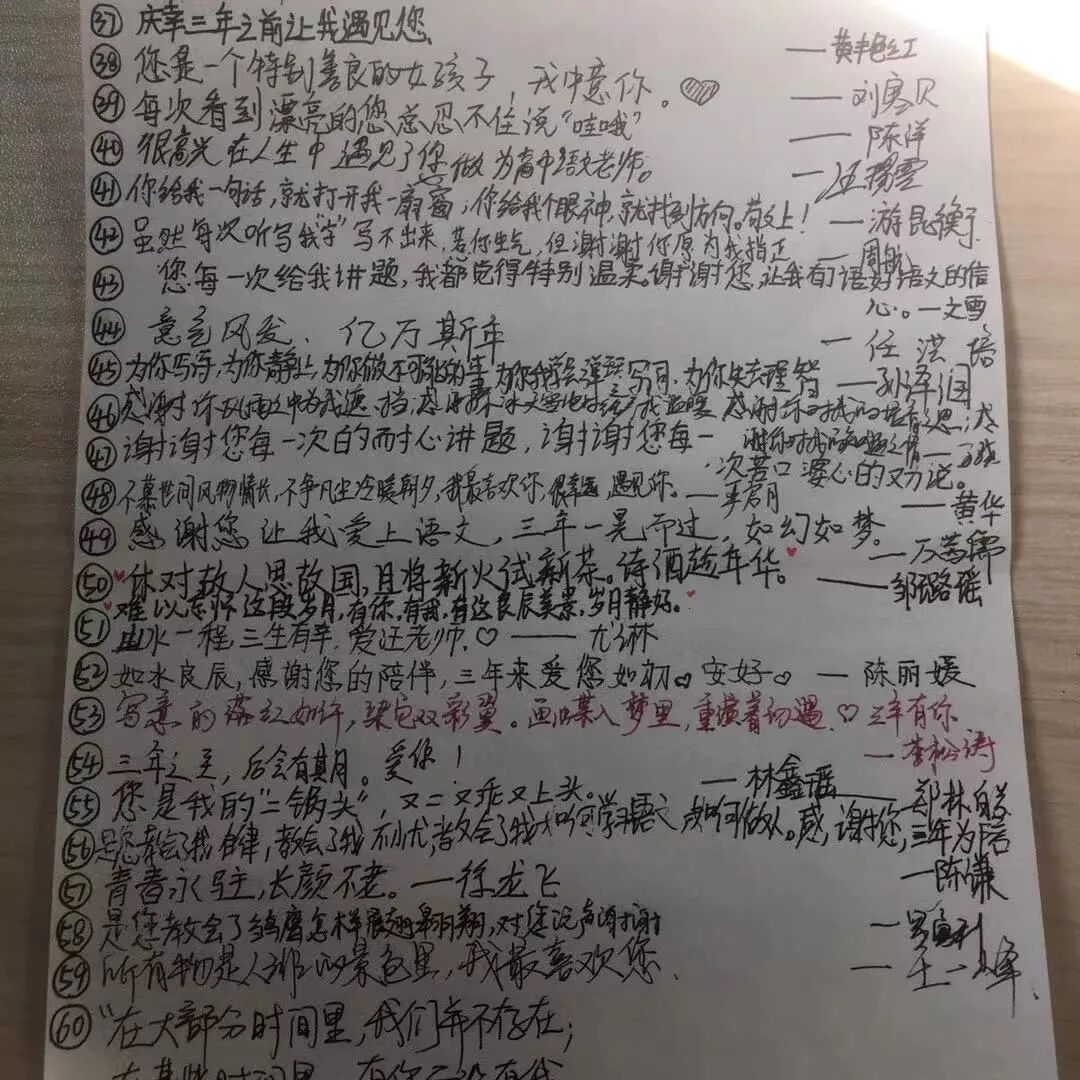 ㊲ 庆幸三年之前让我遇见您
㊳ 您是一个特别善良的女孩子，我中意你。♡
㊴ 每次看到漂亮的您总忍不住说“哇哦” —— 陈洋
㊵ 很高兴在人生中遇见了您做为高中语文老师。
㊶ 你给我一句话，就打开我一扇窗，你给我个眼神，就找到方向。敬上！
㊷ 虽然每次听写我“字”写不出来，惹你生气，但谢谢你原为我指正 — 周航
㊸ 您每一次给我讲题，我都觉得特别温柔。谢谢您，让我有了语好语文的信
心。—文雪
㊹ 意气风发、亿万斯年 — 任洪培
㊺ 为你写诗，为你静止，为你做不可能的事，为你我学会弹琴写词，为你失去理智
㊻ 感谢你风雨中为我遮挡，感谢你冰天雪地中给予我温暖 感谢你对我的培育之恩；感
谢你对我的
㊼ 谢谢您每一次的耐心讲题，谢谢您每一
次苦口婆心的劝说。
— 黄华
㊽ 不慕世间风物情长，不争凡尘冷暖朝夕，我最喜欢你，很幸运，遇见你。
㊾ 感谢您让我爱上语文，三年一晃而过，如幻如梦。
㊿ “休对故人思故国，且将新火试新茶。诗酒趁年华。” —— 邹璐瑶
“难以忘怀这段岁月，有你，有我，有这良辰美景，岁月静好。”
51 山水一程，三生有幸，爱汪老师。♡ —— 尤琳
52 如水良辰，感谢您的陪伴，三年来爱您如初♡安好♡ — 陈丽媛
53 写意的落红如许，染色双彩翼。画蝶入梦里，重演着初遇♡三年有你
— 李松涛
54 三年之至，后会有期。爱你！
— 林鑫瑶
55 您是我的“二锅头”，又二又乖又上头。
56 是您教会了我自律，教会了我不忧，教会了我如何学语文 如何做人。感谢您，三年为陪
— 陈谦
57 青春永驻，长颜不老。— 徐龙飞
58 是您教会了雏鹰怎样展翅翱翔，对您说声谢谢
59 所有物是人非的景色里，我最喜欢您 — 王一峰
60 “在大部分时间里，我们并不存在；
在某些时间里，有你而没有我